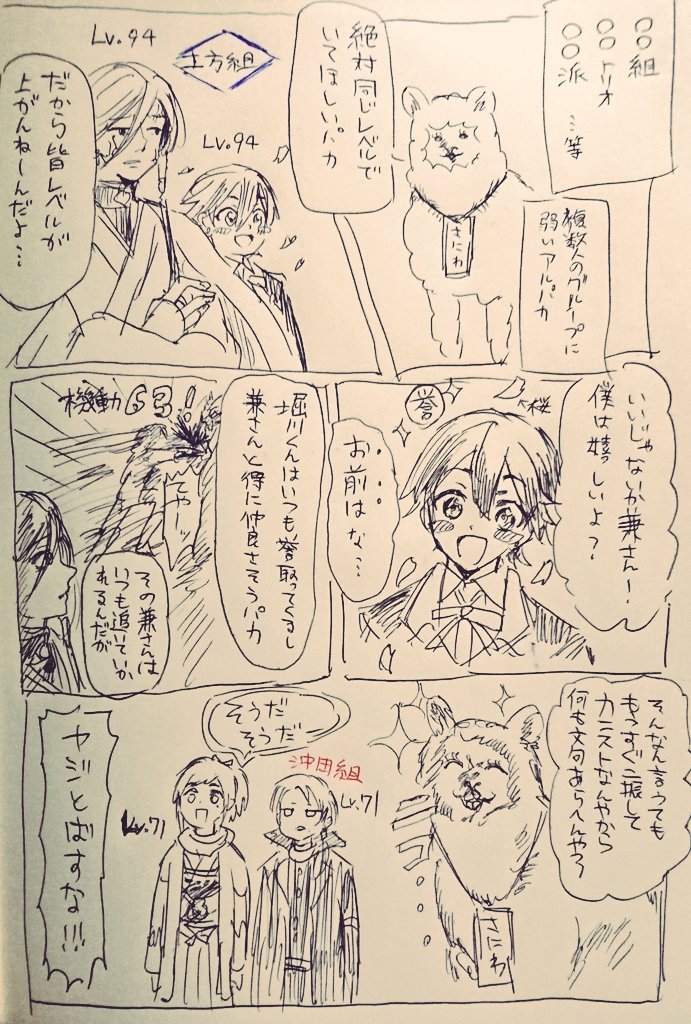 ○○組
○○トリオ
○○派 …等
複数人のグループに
弱いアルパカ
さにわ
絶対同じレベルで
いてほしいパカ
土方組
Lv.94
Lv.94
だから皆レベルが
上がんねーんだよ…
いいじゃないか兼さん!
僕は嬉しいよ?
←桜
誉
お前はな…
堀川くんはいつも誉取ってくるし
兼さんと得に仲良さそうパカ
機動63!
てやーッ
その兼さんは
いつも追いていか
れるんだが
そんなん言うても
もうすぐ二振して
カンストなんやから
何も文句あらへんやろ
さにわ
そうだ
そうだ
沖田組
Lv.71
Lv.71
ヤジとばすな!!!